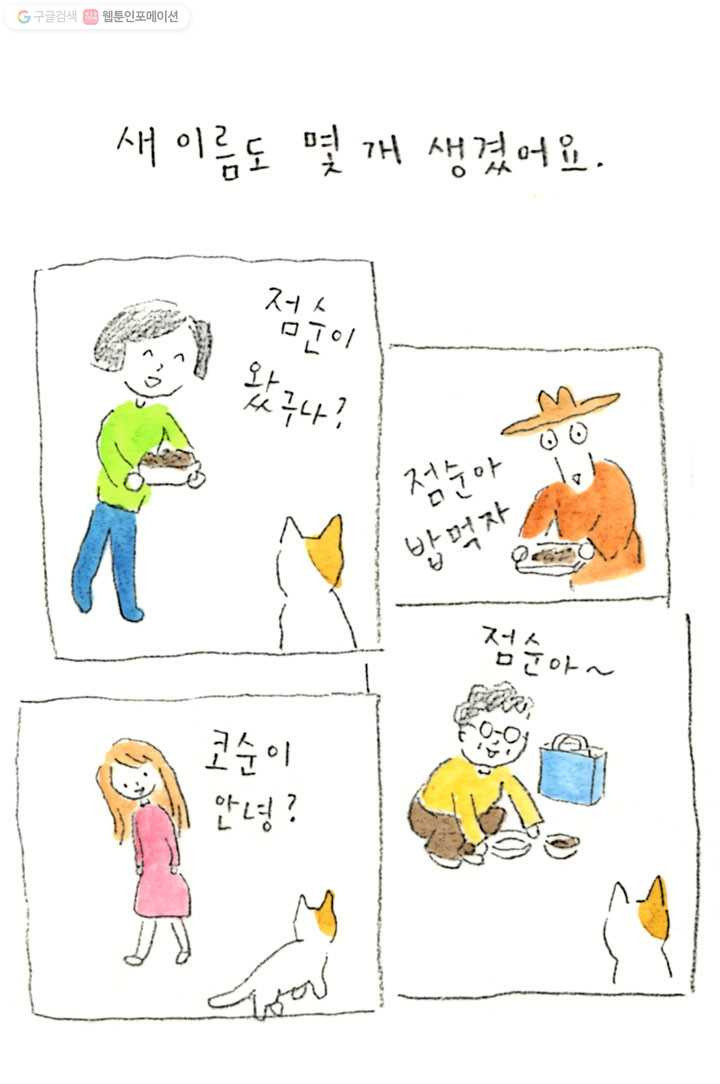 구글검색 웹툰인포메이션
새 이름도 몇 개 생겼어요.
점순이
왔구나?
점순아
밥먹자
코순이
안녕?
점순아~